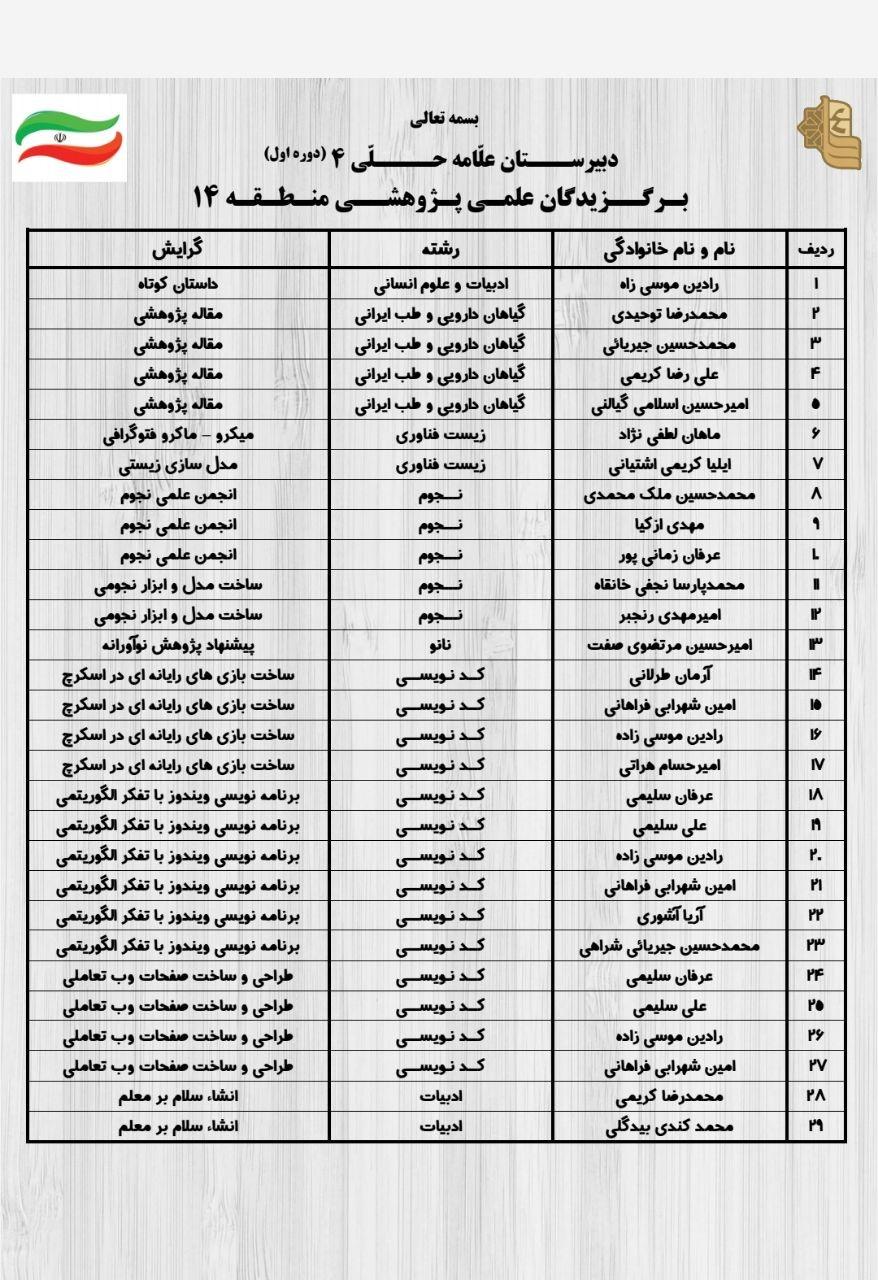 بسمه تعالی
دبیرستان علّامه حلّی ۴ (دوره اول)
برگزیدگان علمی پژوهشی منطقه ۱۴
ردیف نام و نام خانوادگی رشته گرایش
۱ رادین موسی زاه ادبیات و علوم انسانی داستان کوتاه
۲ محمدرضا توحیدی گیاهان دارویی و طب ایرانی مقاله پژوهشی
۳ محمدحسین جیریائی گیاهان دارویی و طب ایرانی مقاله پژوهشی
۴ علی رضا کریمی گیاهان دارویی و طب ایرانی مقاله پژوهشی
۵ امیرحسین اسلامی گیالنی گیاهان دارویی و طب ایرانی مقاله پژوهشی
۶ ماهان لطفی نژاد زیست فناوری میکرو – ماکرو فتوگرافی
۷ ایلیا کریمی اشتیانی زیست فناوری مدل سازی زیستی
۸ محمدحسین ملک محمدی نجوم انجمن علمی نجوم
۹ مهدی ازکیا نجوم انجمن علمی نجوم
۱۰ عرفان زمانی پور نجوم انجمن علمی نجوم
۱۱ محمدپارسا نجفی خانقاه نجوم ساخت مدل و ابزار نجومی
۱۲ امیرمهدی رنجبر نجوم ساخت مدل و ابزار نجومی
۱۳ امیرحسین مرتضوی صفت نانو پیشنهاد پژوهش نوآورانه
۱۴ آرمان طرلانی کد نویسی ساخت بازی های رایانه ای در اسکرچ
۱۵ امین شهرابی فراهانی کد نویسی ساخت بازی های رایانه ای در اسکرچ
۱۶ رادین موسی زاده کد نویسی ساخت بازی های رایانه ای در اسکرچ
۱۷ امیرحسام هراتی کد نویسی ساخت بازی های رایانه ای در اسکرچ
۱۸ عرفان سلیمی کد نویسی برنامه نویسی ویندوز با تفکر الگوریتمی
۱۹ علی سلیمی کد نویسی برنامه نویسی ویندوز با تفکر الگوریتمی
۲۰ رادین موسی زاده کد نویسی برنامه نویسی ویندوز با تفکر الگوریتمی
۲۱ امین شهرابی فراهانی کد نویسی برنامه نویسی ویندوز با تفکر الگوریتمی
۲۲ آریا آشوری کد نویسی برنامه نویسی ویندوز با تفکر الگوریتمی
۲۳ محمدحسین جیریائی شراهی کد نویسی برنامه نویسی ویندوز با تفکر الگوریتمی
۲۴ عرفان سلیمی کد نویسی طراحی و ساخت صفحات وب تعاملی
۲۵ علی سلیمی کد نویسی طراحی و ساخت صفحات وب تعاملی
۲۶ رادین موسی زاده کد نویسی طراحی و ساخت صفحات وب تعاملی
۲۷ امین شهرابی فراهانی کد نویسی طراحی و ساخت صفحات وب تعاملی
۲۸ محمدرضا کریمی ادبیات انشاء سلام بر معلم
۲۹ محمد کندی بیدگلی ادبیات انشاء سلام بر معلم